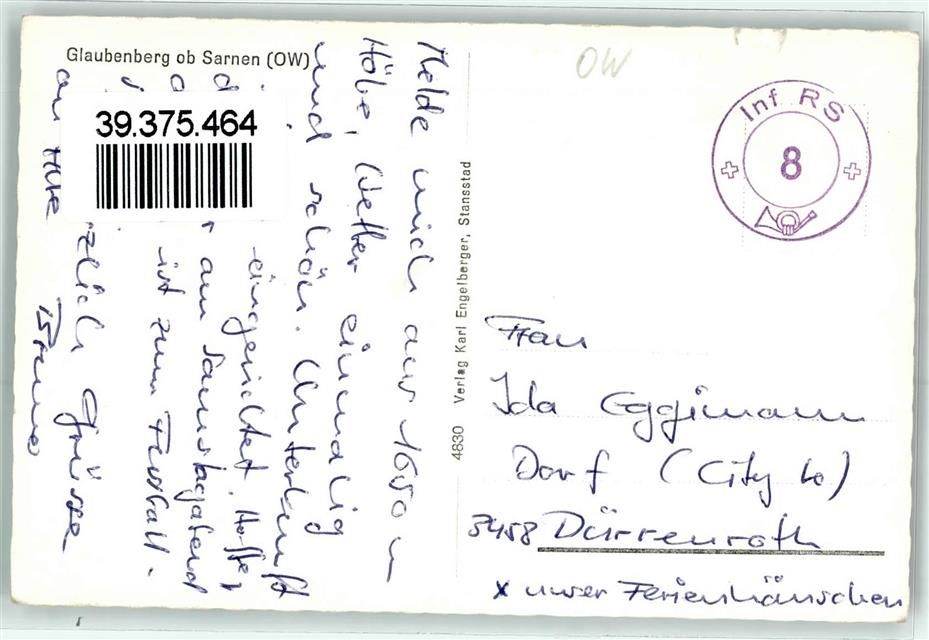 Glaubenberg ob Sarnen (OW)
39.375.464
OW
Inf RS
8
Melde mich aus 1650 m
Höhe, Wetter einmalig
und schön. Unterkunft
eingerichtet. Hoffe
am Samstagabend
ist zum Fussball.
zlich Grüsse
an Alle
4830 Verlag Karl Engelberger, Stansstad
Frau
Ida Eggimann
Dorf (City
3458 Dürrenroth
x unser Ferienhäuschen